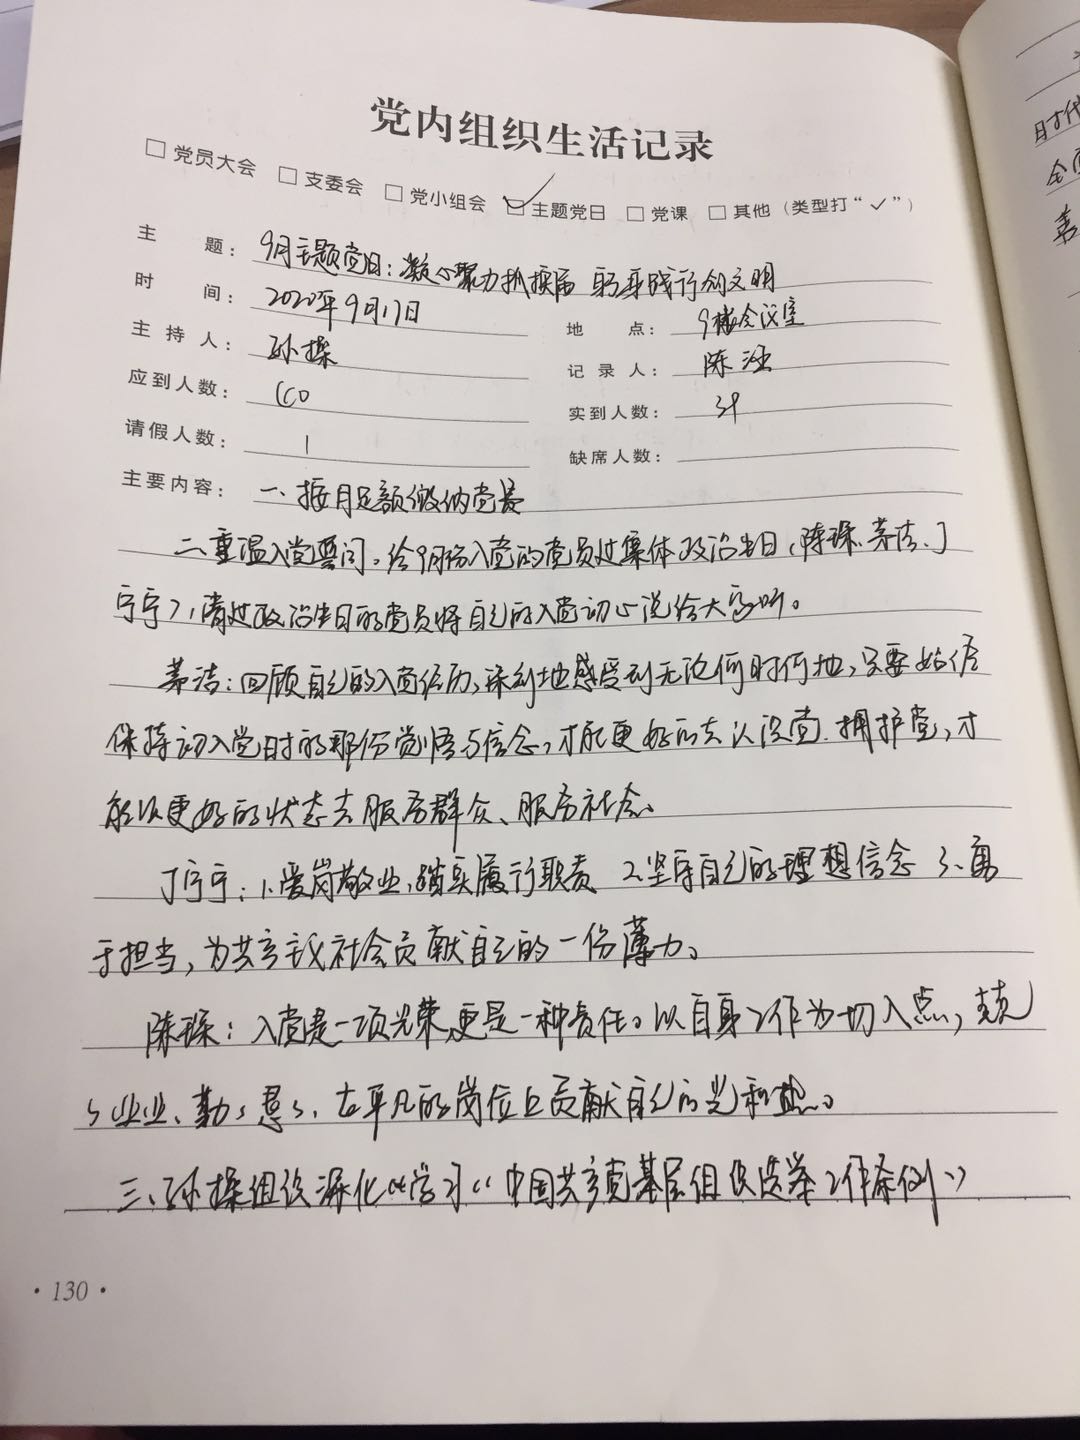 党内组织生活记录
□ 党员大会 □ 支委会 □ 党小组会 ☑ 主题党日 □ 党课 □ 其他（类型打“✓”）
主 题： 9月主题党日：凝心聚力抓换届 躬身践行创文明
时 间： 2020年9月17日 地 点： 9楼会议室
主 持 人： 孙操 记 录 人： 陈
应到人数： 实到人数： 39
请假人数： 1 缺席人数：
主要内容： 一、按月足额缴纳党费
二、重温入党誓词，给9月份入党的党员过集体政治生日（陈琛、茅洁、丁
宁宁），请过政治生日的党员将自己的入党初心说给大家听。
茅洁：回顾自己的入党经历，深刻地感受到无论何时何地，只要始终
保持初入党时的那份觉悟与信念，才能更好的去认识党、拥护党，才
能以更好的状态去服务群众、服务社会。
丁宁宁：1.爱岗敬业，确实履行职责 2.坚守自己的理想信念 3、勇
于担当，为共产主义社会贡献自己的一份薄力。
陈琛：入党是一项光荣，更是一种责任。以自身工作为切入点，兢兢
业业、勤勤恳恳、在平凡的岗位上贡献自己的光和热。
三、孙操组织深化学习《中国共产党基层组织选举工作条例》
· 130 ·
时代
全面
善